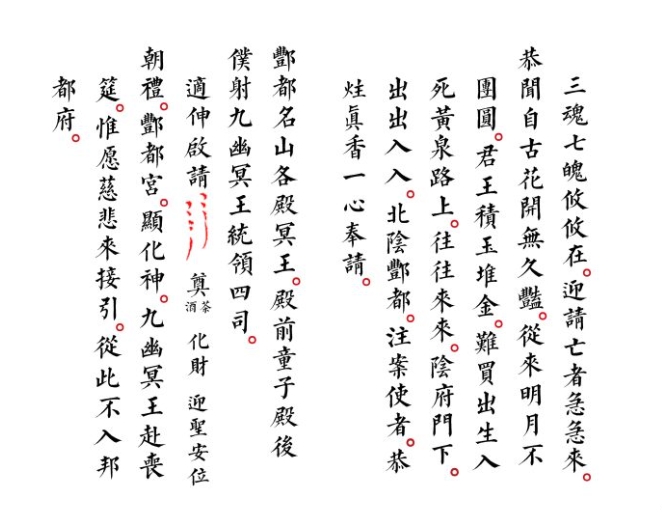 三魂七魄攸攸在。迎請亡者急急來。
恭聞自古花開無久豔。從來明月不
團圓。君王積玉堆金。難買出生入
死黃泉路上。往往來來。陰府門下。
出出入入。北陰酆都。注案使者。恭
炷眞香一心奉請。
酆都名山各殿冥王。殿前童子殿後
僕射九幽冥王統領四司。
適伸啟請 奠茶酒 化財 迎聖安位
朝禮。酆都宮。顯化神。九幽冥王赴喪
筵。惟愿慈悲來接引。從此不入邦
都府。